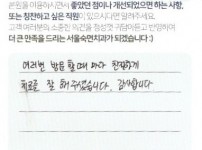 본원을 이용하시면서 좋았던 점이나 개선되었으면 하는 사항,
또는 칭찬하고 싶은 직원이 있으시다면 알려주세요.
고객 여러분의 소중한 의견을 정성껏 귀담아듣고 반영하여
더 큰 만족을 드리는 서울숙면치과가 되겠습니다 :)
여러번 방문 할 때 마다 친절하게
치료를 잘 해 주셨습니다. 감사합니다